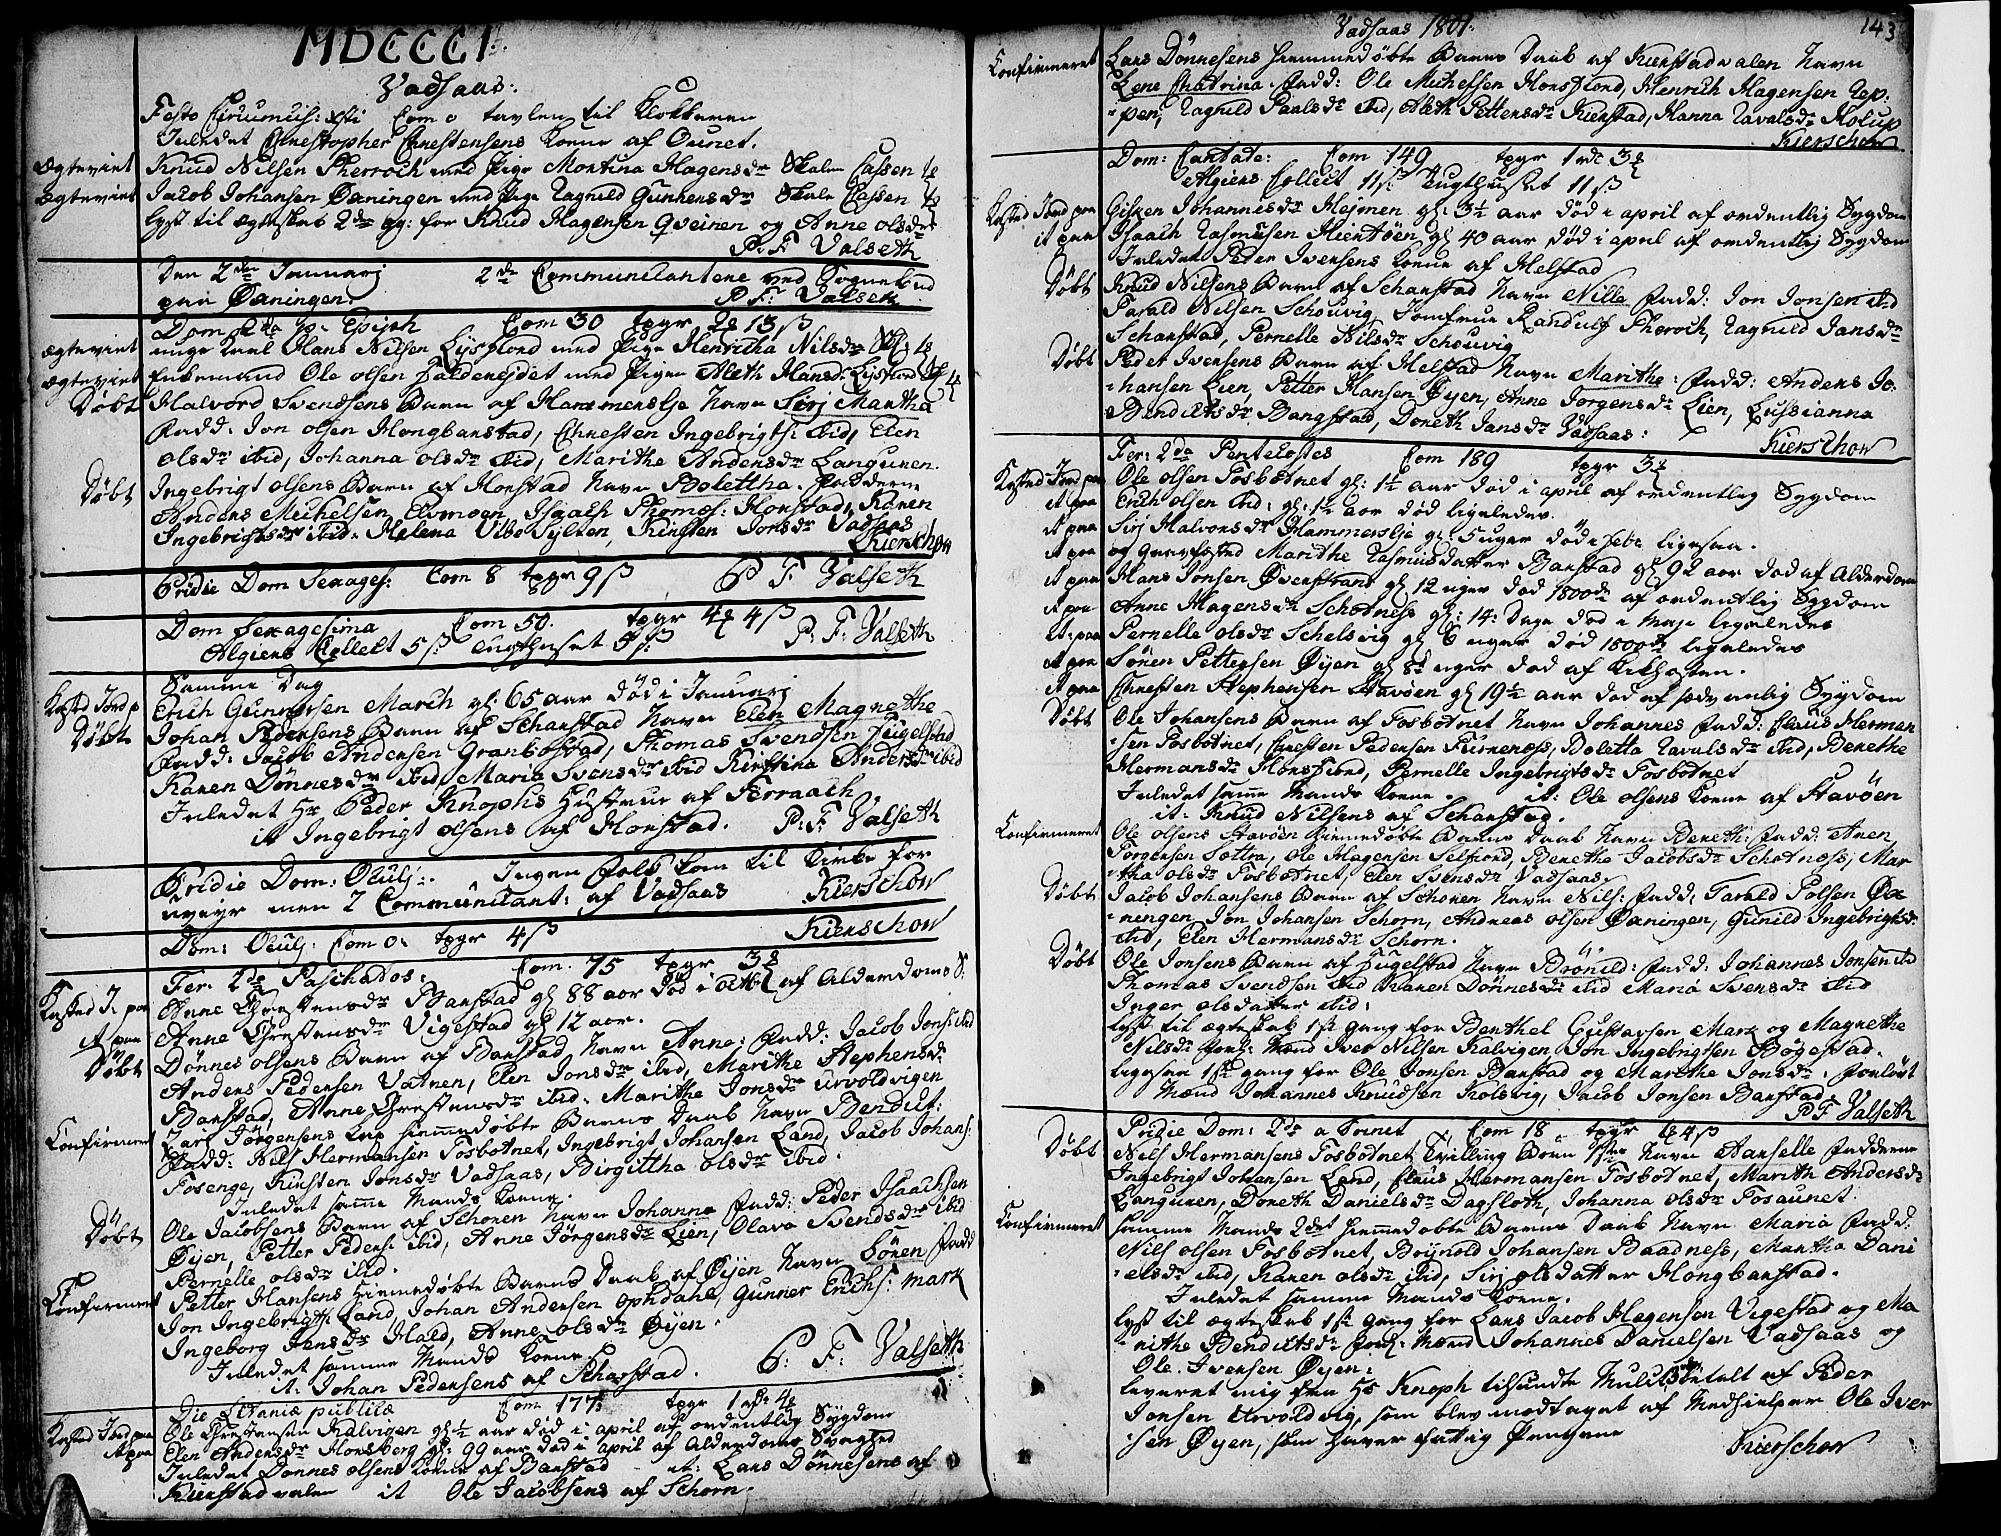 MDCCCI.
Vadsaas:
Festo Circumcis: Xsti Com 0 tavlen til Klokkeren
Inledet Christopher Christensens Kone af Ournet.
Ægteviet Knud Nilsen Therroch med Pige Martina Hagensdr Skalen Cassen
Ægteviet Jacob Johansen Øxningen med Pige Ragnild Gunnersdr Skale Cassen
lyst til ægteskab 2den g: for Knud Hagensen Qveinen og Anne olsdr
P: F. Valseth
Den 2den Januarj 2de Communicantere ved Sognebud
paa Øxningen. P: F: Valseth
Dom 2da p. Epiph Com 30 tpgr 2 13 ß
ægteviet unge Karl Hans Nilsen Lysfiord med Pige Henricha Nilsdr
ægteviet Enkemand Ole olsen Haldeneſdet med Pigen Aleth Hansd: Lysfiord
Døbt Halvord Svendsens Barn af Hammerslje Navn Sirj Martha
Fadd: Jon olsen Hongbarstad, Christen Ingebrigts: ibid, Elen
olsdr ibid, Johanna olsdr ibid, Marithe Andersdr Languren.
Døbt Ingebrigt olsens Barn af Horstad Navn Bolettha. Fadderne
Anders Michelsen Evmoen, Isach Thomes: Horstad, Karen
Ingebrigtsdr ibid. Helena Vibe Sylten, Kirsten Jonsdr Vadsaas
Kierschow
Pridie Dom Sexages: Com 8 tpgr 9 ß P F Valseth
Dom sexagesima Com 50. tpgr 4 4 ß
Algiens Collect 5 ß: tugthuset 5 ß: P: F: Valseth
Samme Dag
Kasted Jord p Erich Gunnersen March gl: 65 aar død i Januarj
Døbt Johan Pedersens Barn af Scharstad Navn Elen Magnethe
Fadd: Jacob Andersen Granbostad, Thomas Svendsen Fugelstad
Karen Dønnesdr ibid, Maria Svensdr ibid Kirstina Andersdr ibid
Inledet Hr Peder Knophs Hustrue af Terraach
it Ingebrigt olsens af Horstad. P: F: Valseth
Pridie Dom: Oculj. Ingen Folk kom til Kirke for
uveyr men 7 Communicant: af Vadsaas Kierschow
Dom: Oculj: Com 0. tpgr 4 ß Kierschow
Fer: 2da Paschados: Com. 75 tpgr 3
Kasted J. paa Anne Christensdr Barstad gl 88 aar død i octb: af Alderdoms S:
it paa Anne Christensdr Vigestad gl 12 aar.
Døbt Dønnes olsens Barn af Barstad Navn Anne: Fadd: Jacob Jons: ibid
Anders Pedersen Vatnen, Elen Jonsdr ibid, Marithe Stephensdr
Barstad, Anne Christensdr ibid. Marithe Jonsdr Urvoldvigen
Confirmeret Lars Jørgensens Lep hiemmedøbte Barns Daab Navn Bendict:
Fadd: Nils Hermansen Fosbotnet, Ingebrigt Johansen Land, Jacob Johans:
Fosenge, Kirsten Jonsdr Vadsaas, Birgittha olsdr ibid.
Inledet samme Mands Kone.
Døbt Ole Jacobsens Barn af Schoren Navn Johanna Fadd: Peder Isaachsen
Øyen, Petter Peders: ibid, Anne Jørgensdr Lien, Olava Svendsdr ibid
Pernelle olsdr ibid.
Confirmeret Petter Hansens hiemmedøbte Barns Daab af Øyen Navn Sören Fadd
Jon Ingebrigts: Land, Johan Andersen ophdahl, Gunner Erichs: mark
Ingeborg Jensdr Hald, Anne olsdr Øyen.
Inledet samme Mands Kone
it: Johan Pedersens af Scharstad. P: F: Valseth
Die Litaniæ publicæ Com 177: tpgr 1 4
Kasted Jord paa Ole Christensen Kalvigen gl ½ aar død i april af ordentlig Sygdom
it paa Elen Andersdr Horsborg gl: 99 aar død i april af Alderdoms Svaghed
Inledet Dønnes olsens Kone af Barstad it: Lars Dønnesens af
Kierstadvalen it Ole Jacobsens af Schorn.
Vadsaas 1801.
143
Confirmeret Lars Dønnesens hiemmedøbte Barns Daab af Kierstadvalen Navn
Lene Chatrina Fadd: Ole Michelsen Horsfiord, Henrich Hagensen Rep:
pen, Ragnild Paalsdr ibid, Aleth Pettersdr Kierstad, Hanna Ravalsdr Kolup
Kierschow
Dom: Cantate: Com 149 tpgr 1 3
Algiens Collect 11 ß Tugthuset 11 ß
Kasted Jord paa Gisken Johannesdr Hejmen gl: 3½ aar død i april af ordentlig Sygdom
it paa Isaach Rasmusen Kientöen gl 40 aar død i april af ordentlig Sygdom
Inledet Peder Iversens Kone af Helstad
Døbt Knud Nilsens Barn af Scharstad Navn Nille Fadd: Jon Jonsen ibid
Parald Nilsen Schouvig, Jomfrue Randulf Therroch, Ragnild Jansdr
Scharstad, Pernelle Nilsdr Schouvig
Døbt Peder Iversens Barn af Helstad Navn Marithe: Fadd: Anders Jo:
hansen Lien, Petter Hansen Øyen, Anne Jørgensdr Lien, Lussianna
Bendictsdr Bangstad, Doreth Jansdr Vadsaas: Kierschow
Fer: 2da Pentecostes Com 189 tpgr 3
Kasted Jord paa Ole olsen Fosbotnet gl: 1½ aar død i april af ordentlig Sygdom
it paa Erich olsen ibid: gl: 1½ aar død ligeledes.
it paa Sirj Halvorsdr Hammerslje gl 5 uger død i febr ligesaa.
it paa og Gravfæsted Marithe Rasmusdatter Barstad gl 92 aar død af Alderdom
it paa Hans Jonsen Øverstrand gl 12 uger død 1800de af ordentlig Sygdom
it paa Anne Hagensdr Schotness gl: 14: Dage død i Maj: ligeledes
it: paa Pernelle olsdr Schelsvig gl 6 uger død 1800de ligeledes
it paa Sören Pettersen Øyen gl 8 uger død af Kikhosten.
it paa Christen Stephensen Havöen gl 19½ aar død af sædvanlig Sygdom
Døbt Ole Johansens Barn af Fosbotnet Navn Johannes Fadd: Claus Herman
sen Fosbotnet, Christen Pedersen Furrenoss, Boletta Ravalsdr ibid, Berethe
Hermansdr Horsfiord, Pernelle Ingebrigtsdr Fosbotnet
Inledet samme Mands Kone. it: Ole olsens Kone af Havöen
it: Knud Nilsens af Scharstad.
Confirmeret Ole olsens Havöen hiemmedøbte Barns Daab Navn Bereth: Fadd: Aren
Torgersen Sottra, Ole Hagensen Selfiord, Berethe Jacobsdr Schotness, Mar
tha olsdr Fosbotnet, Elen Svensdr Vadsaas.
Døbt Jacob Johansens Barn af Schoren Navn Nils: Fadd: Tarald Polsen Øx
ningen, Jon Johansen Schorn, Andreas olsen Øxningen, Gunild Ingebrigtsdr
ibid, Elen Hermansdr Schorn.
Døbt Ole Jonsens Barn af Fugelstad Navn Brönild: Fadd: Johannes Jonsen ibid
Thomas Svendsen ibid Karen Dønnesdr ibid Maria Svensdr ibid
Inger olsdatter ibid:
lyst til ægteskab 1ste gang for Benthel Gustavsen Mark og Magnethe
Nilsdr forl: Mænd Iver Nilsen Kalvigen Jon Ingebrigtsen Bøgestad.
ligesaa 1ste gang for Ole Jonsen Barstad og Marithe Jonsdr. forlovt
Mænd Johannes Knudsen Kolsvig, Jacob Jonsen Barstad
P: F Valseth
Pridie Dom: 2da a Trinet Com 18 tpgr 4 ß
Døbt Nils Hermansens Fosbotnet Tvilling Barn 1ste Navn Hanselle Fadderne
Ingebrigt Johansen Land, Claus Hermansen Fosbotnet, Marith Andersdr
Languren, Doreth Danielsdr Dagsloth, Johanna olsdr Fosaunet.
Confirmeret samme Mands 2det hiemmedøbte Barns Daab Navn Maria Fadd:
Nils olsen Fosbotnet, Brynold Johansen Baadness, Martha Dani
elsdr ibid, Karen olsdr ibid, Sirj olsdatter Hongbarstad.
Inledet samme Mands Kone.
lyst til ægteskab 1ste gang for Lars Jacob Hagenson Vigestad og Ma
rithe Bendictsdr forl: Mænd Johannes Danielsen Vadsaas og
Ole Iversen Øyen:
leveret mig fra Hr Knoph tilsendte Mulct betalt af Peder
Jonsen Urvoldvig, som blev modtaget af Medhielper Ole Iver
sen Øyen, som haver fattig Pengene Kierschow